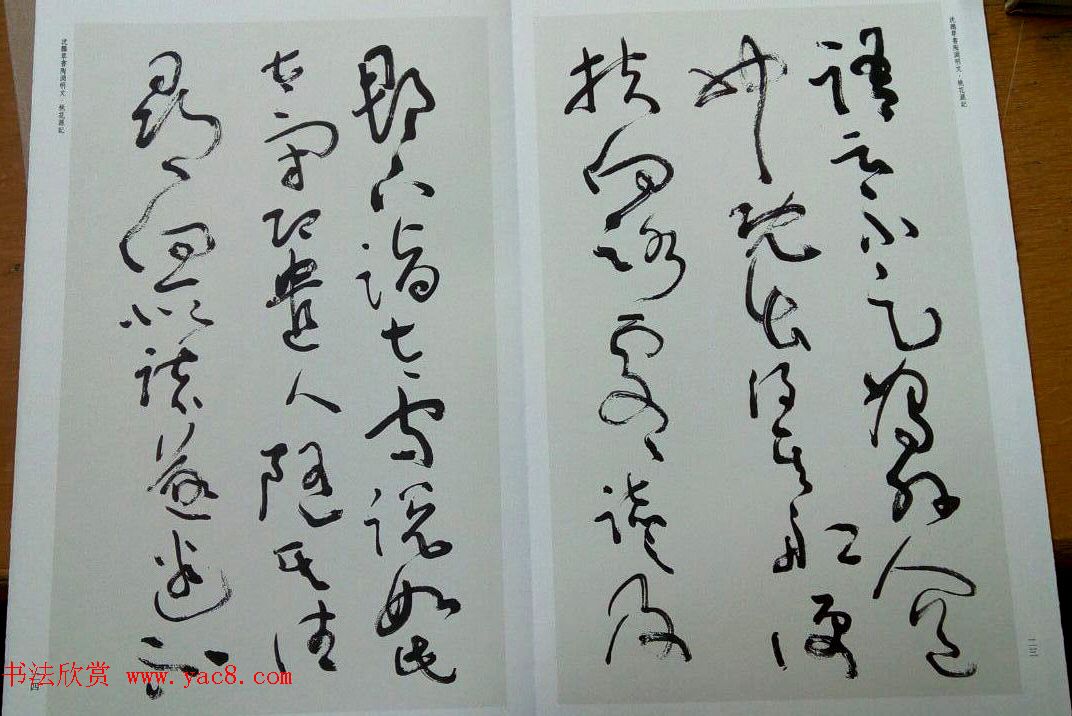 沈鵬草書陶淵明文·桃花源記
語云不足為外人道
也既出得其舡便
扶向路處處誌及
二三
郡下詣太守說如此
太守即遣人隨其往
尋向所誌遂迷不
沈鵬草書陶淵明文·桃花源記
四
书法欣赏 www.yac8.com